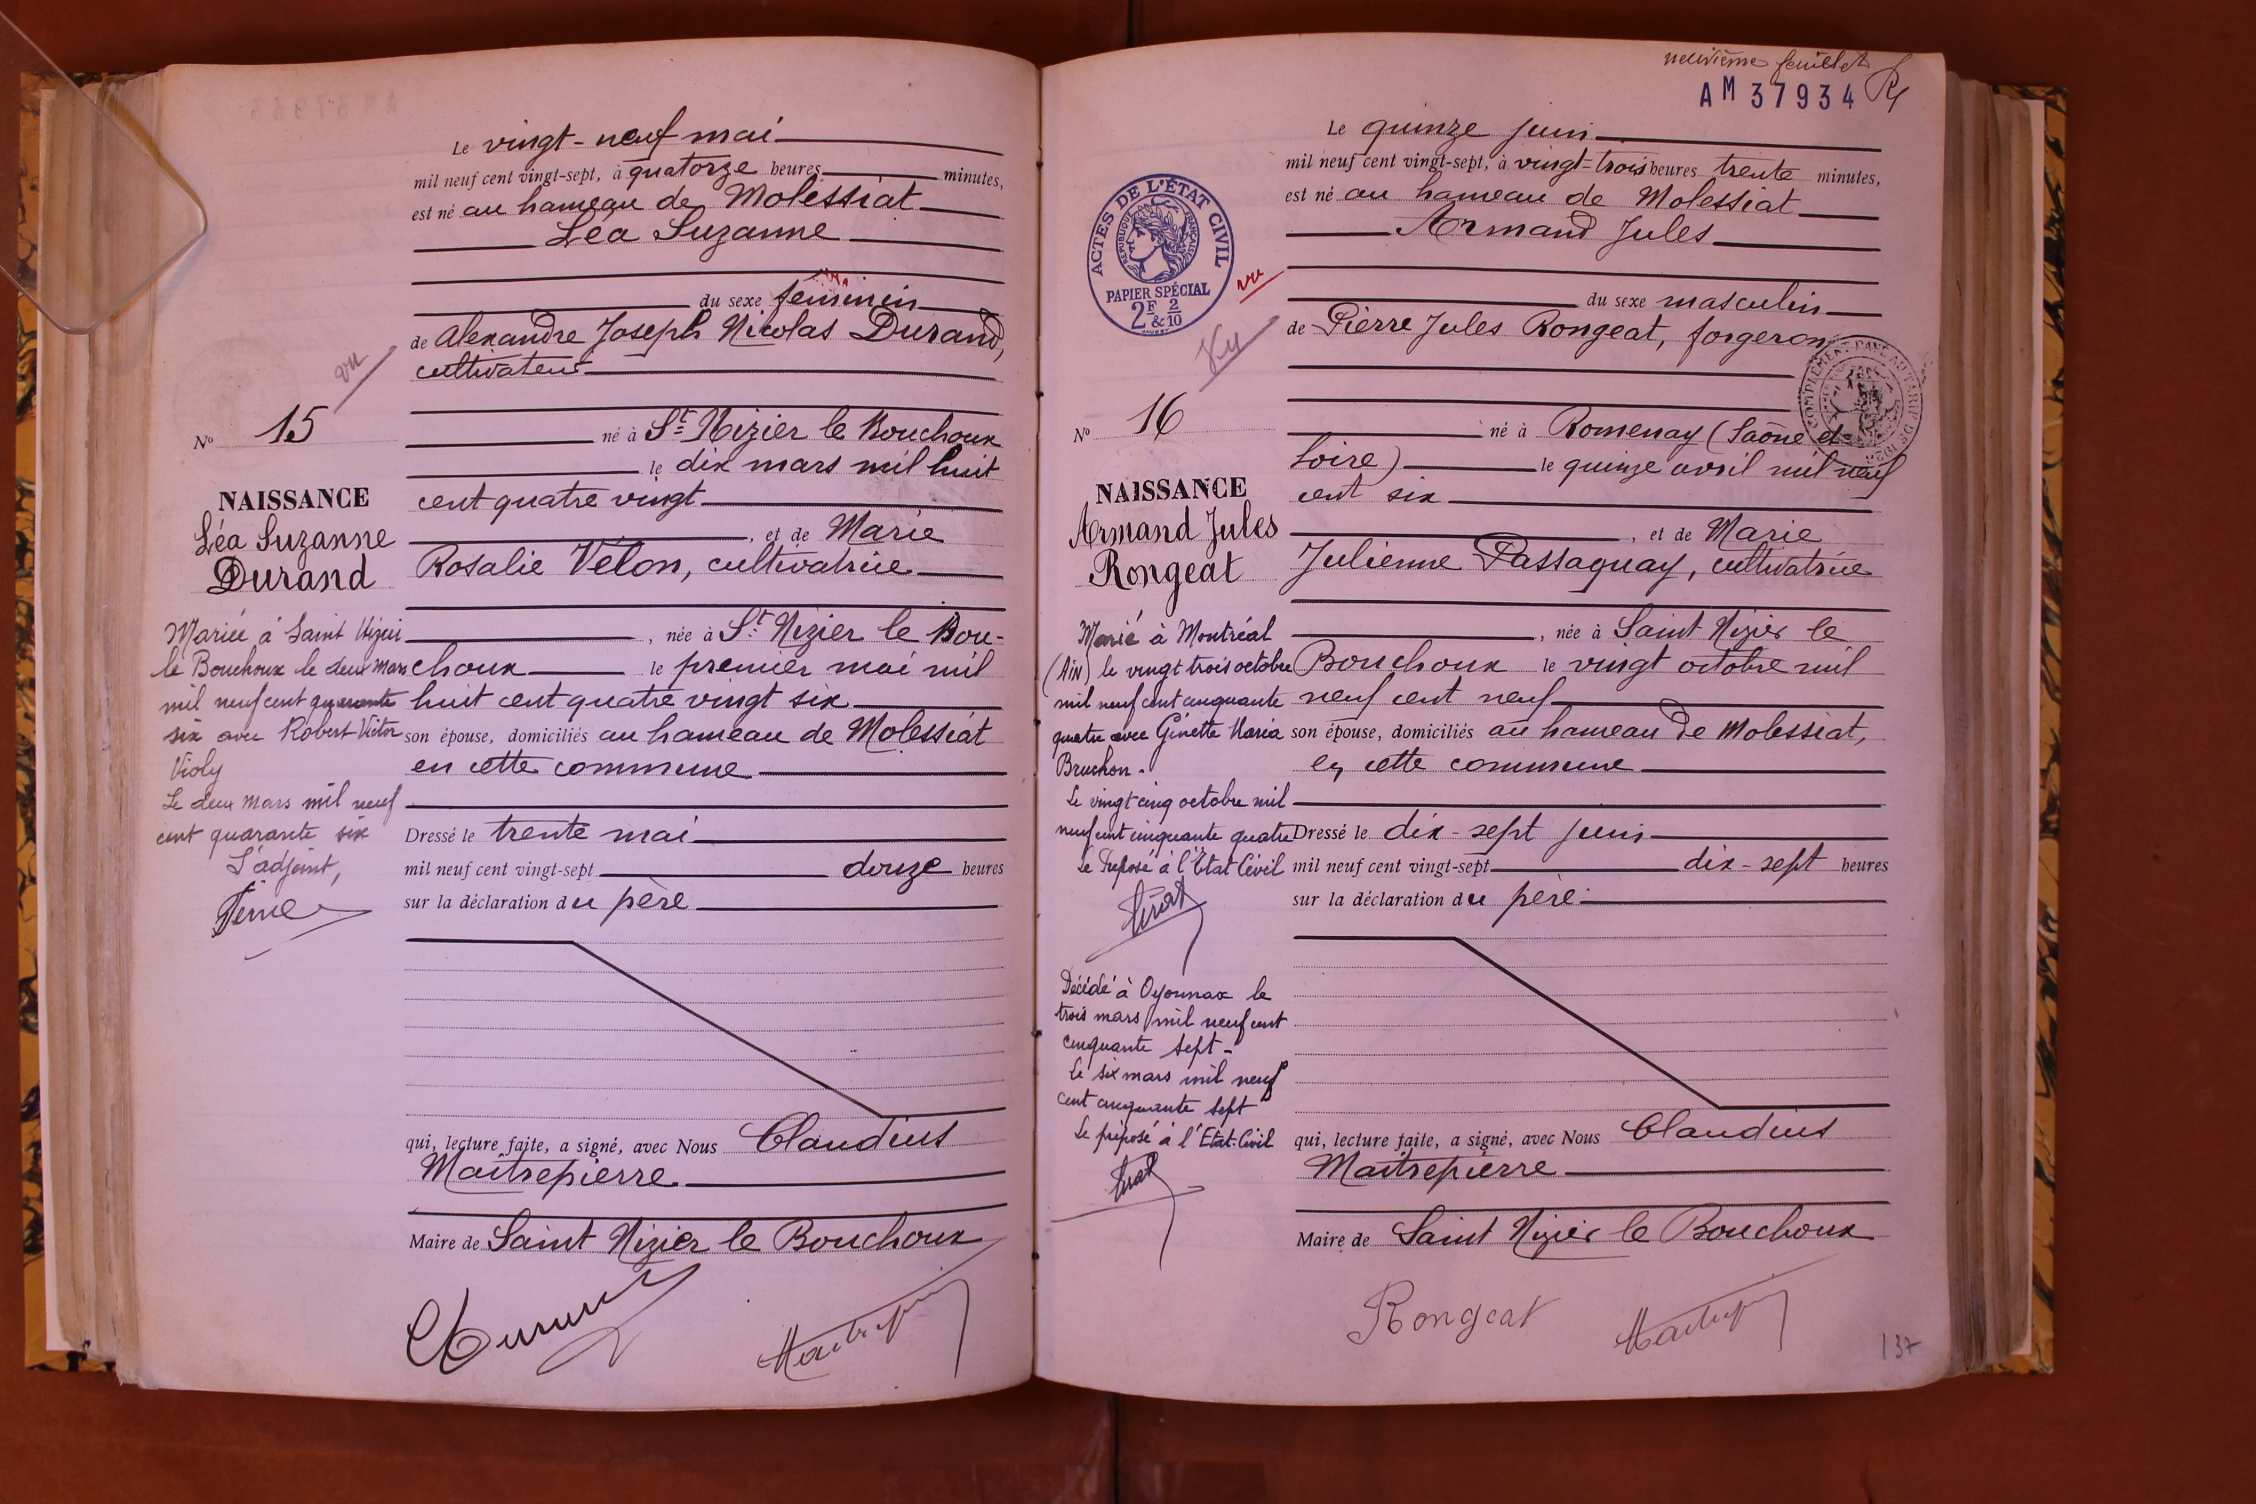 Le vingt-neuf mai
mil neuf cent vingt-sept, à quatorze heures minutes,
est né au hameau de Molessiat
Léa Suzanne
du sexe féminin
de Alexandre Joseph Nicolas Durand,
cultivateur
vu
Nº 15
né à St Nizier le Bouchoux
le dix mars mil huit
cent quatre vingt
NAISSANCE
Léa Suzanne
Durand
, et de Marie
Rosalie Vélon, cultivatrice
, née à St Nizier le Bou-
choux le premier mai mil
huit cent quatre vingt six
son épouse, domiciliés au hameau de Molessiat
en cette commune
Mariée à Saint Nizier
le Bouchoux le deux mars
mil neuf cent quarante
six avec Robert Victor
Violy
Le deux mars mil neuf
cent quarante six
L'adjoint,
Dressé le trente mai
mil neuf cent vingt-sept douze heures
sur la déclaration du père
qui, lecture faite, a signé, avec Nous Claudius
Maitrepierre
Maire de Saint Nizier le Bouchoux
neuvième feuillet
AM 37934
Le quinze juin
mil neuf cent vingt-sept, à vingt-trois heures trente minutes,
est né au hameau de Molessiat
Armand Jules
ACTES DE L'ÉTAT CIVIL
RÉPUBLIQUE FRANÇAISE
PAPIER SPÉCIAL
2F & 2/10
vu
Vu
du sexe masculin
de Pierre Jules Rongeat, forgeron
Nº 16
né à Romenay (Saône et
Loire) le quinze avril mil neuf
cent six
NAISSANCE
Armand Jules
Rongeat
, et de Marie
Julienne Passaquay, cultivatrice
, née à Saint Nizier le
Bouchoux le vingt octobre mil
neuf cent neuf
son épouse, domiciliés au hameau de Molessiat,
en cette commune
Marié à Montréal
(Ain) le vingt trois octobre
mil neuf cent cinquante
quatre avec Ginette Maria
Bruchon.
Le vingt cinq octobre mil
neuf cent cinquante quatre
Le Préposé à l'Etat Civil
Décédé à Oyonnax le
trois mars mil neuf cent
cinquante sept -
Le six mars mil neuf
cent cinquante sept
Le préposé à l'Etat-Civil
Dressé le dix-sept juin
mil neuf cent vingt-sept dix-sept heures
sur la déclaration du père
qui, lecture faite, a signé, avec Nous Claudius
Maitrepierre
Maire de Saint Nizier le Bouchoux
Rongeat
137